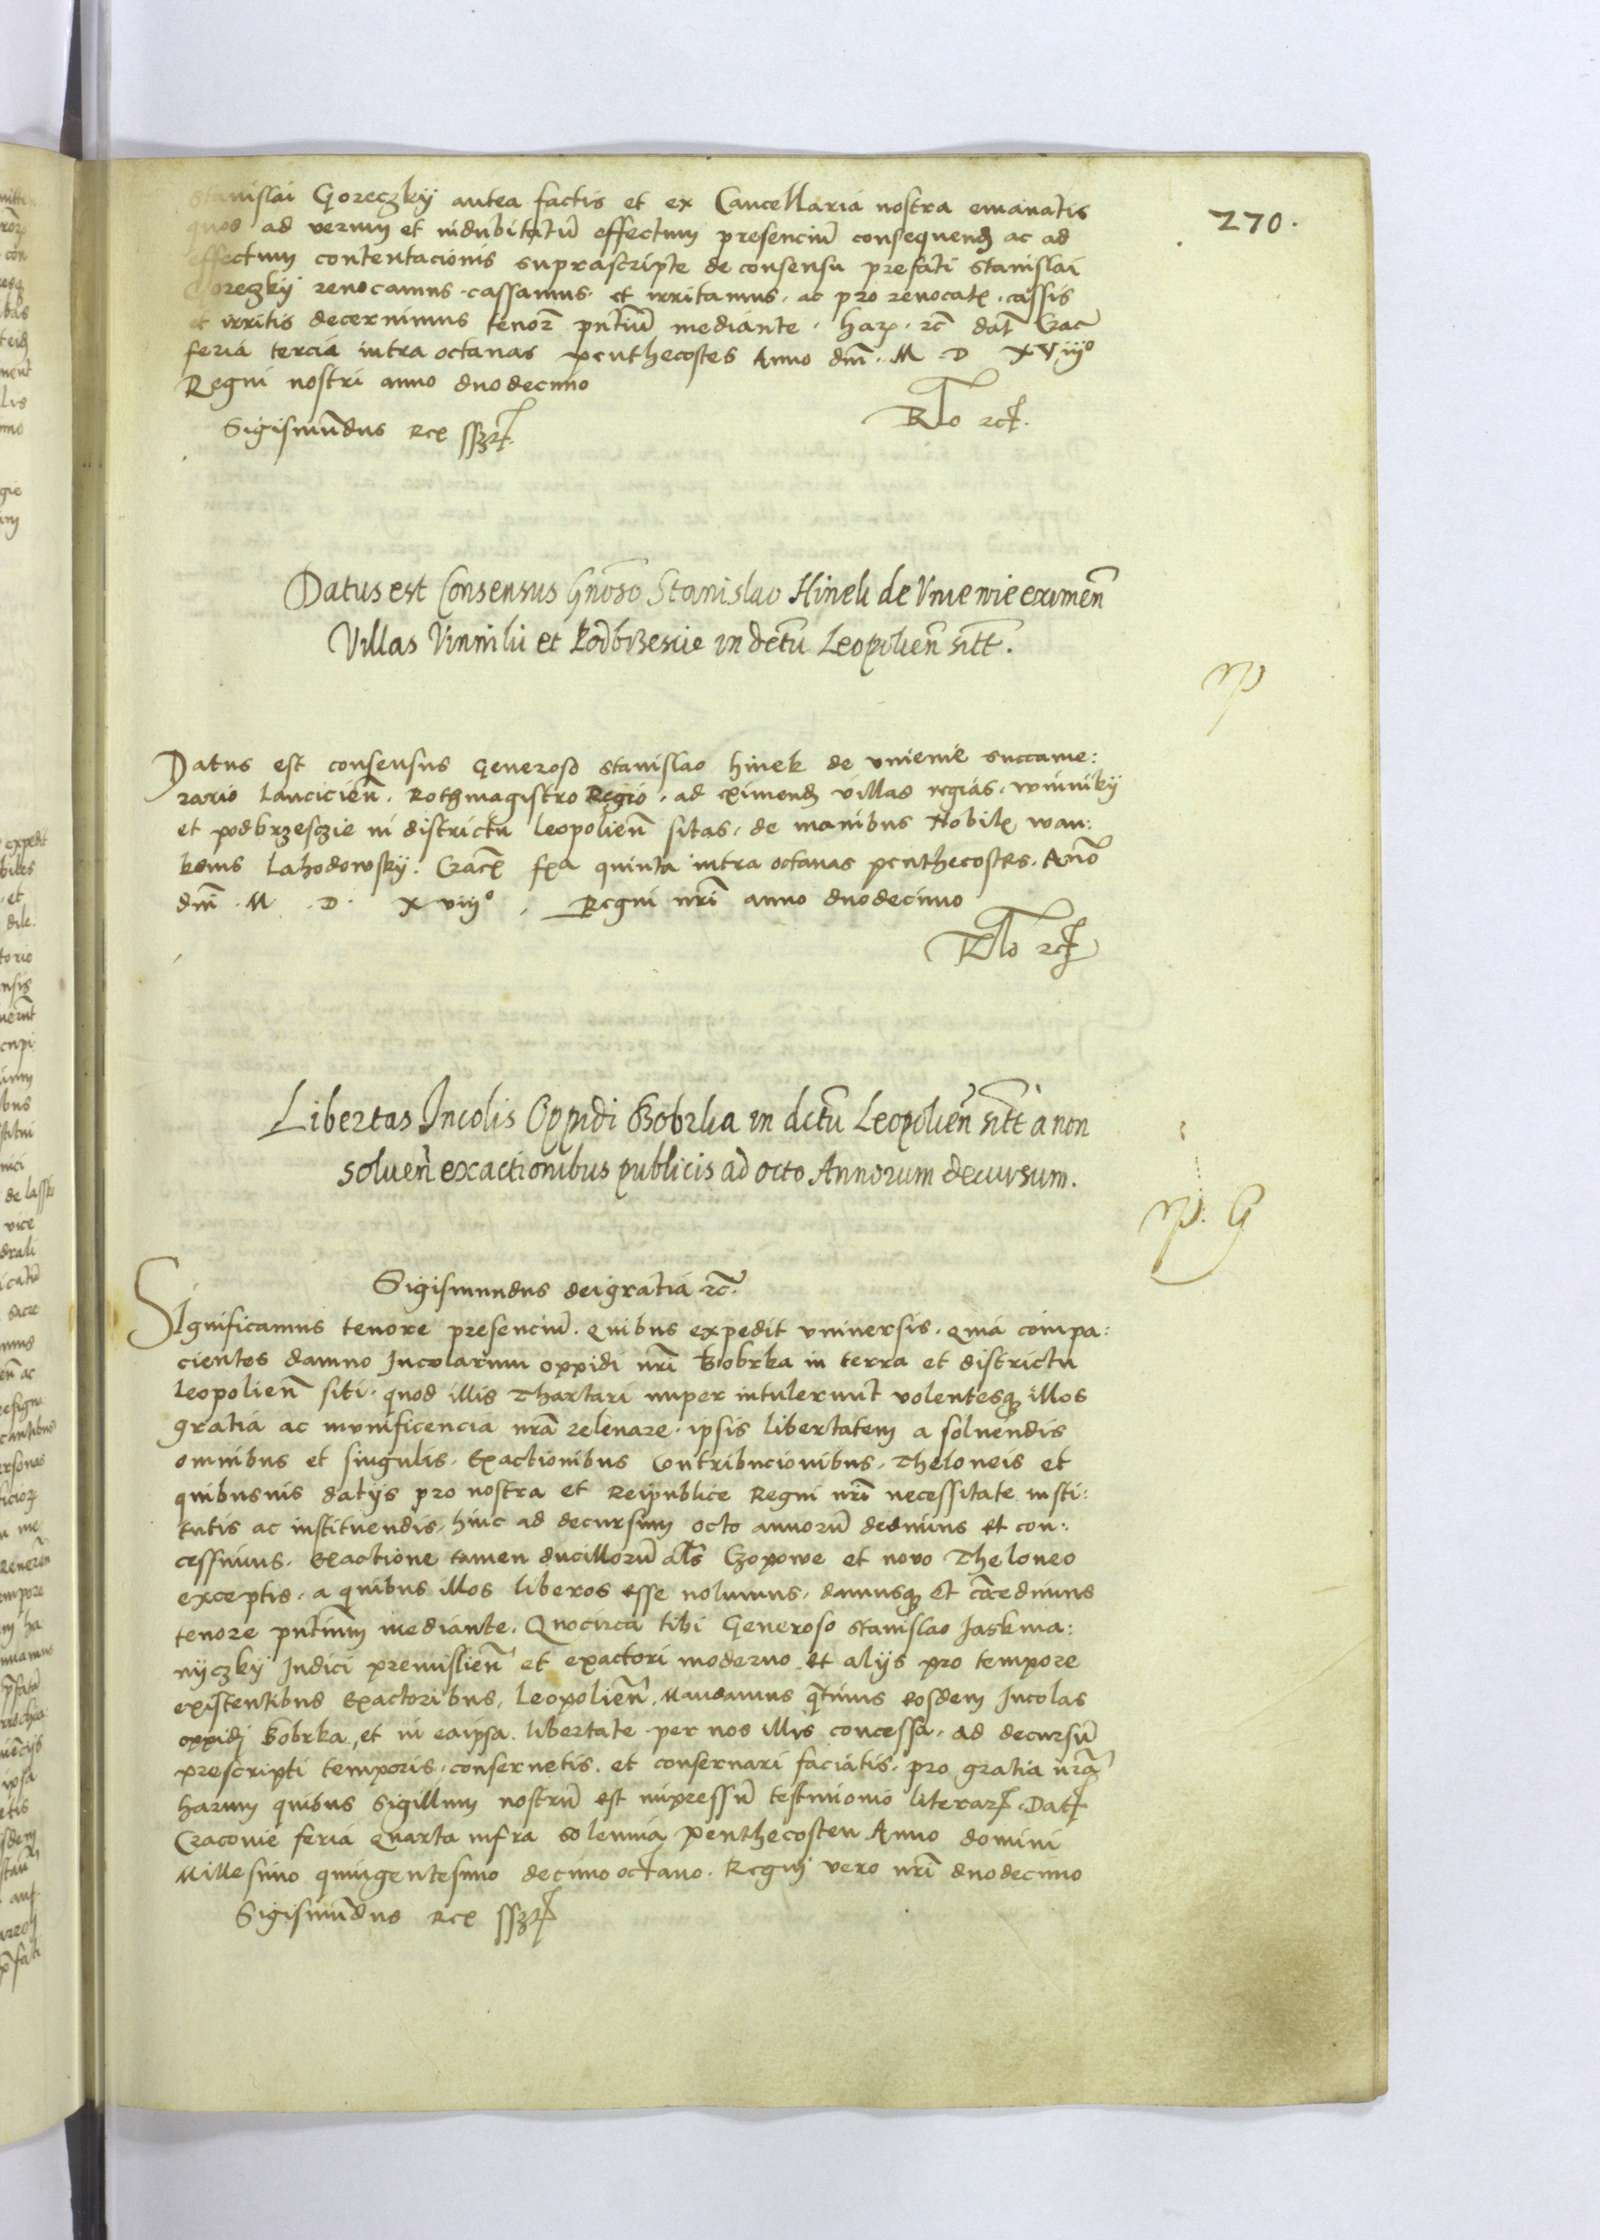 270.
stanislai Goreczky antea factis et ex Cancellaria nostra emanatis
quod ad verum et indubitatū effectum presenciū consequend ac ad
effectum contentacionis suprascripte de consensu prefati stanislai
Goreczky revocamus . cassamus . et irritamus . ac pro revocat . cassis
et irritis decernimus tenor pntiū mediante . har . rc dat Crac
feria tercia intra octanas penthecostes Anno dni . M D XViijo
Regni nostri anno duodecimo
Rlo rct.
Sigismūdus Rex sszt.
Datus est Consensus Gnōso Stanislao Hinek de Vnienie eximen̄
Villas Vinniki et Podbrzescie in dctu Leopolien̄ sitt.
Datus est consensus Generoso stanislao hinek de vnienie succame:
rario Lancicien̄ . Rothmagistro Regio . ad eximend villas regias . winniky
et podbrzesczie in districtu Leopolien̄ sitas . de manibus Nobil wan:
konis Lahodowsky . Crac fra quinta intra octanas penthecostes . Anō
dni . M . D . X viijo . Regni nri anno duodecimo
Rlo rct
Libertas Incolis Oppidi Bobrka in dctu Leopolien̄ sitt a non
soluen̄ exactionibus publicis ad octo Annorum decursum.
Sigismundus deigratia rc.
Significamus tenore presenciū . quibus expedit vniversis . quia compa:
cientes damno Incolarum oppidi nri Bobrka in terra et districtu
Leopolien̄ siti . quod illis Thartari nuper intulerunt volentesq illos
gratia ac munificencia nra relevare . ipsis libertatem a solvendis
omnibus et singulis . Exactionibus Contribucionibus . Theloneis et
quibusvis datijs pro nostra et Reipublice Regni nri necessitate insti:
tutis ac instituendis . hinc ad decursum octo annorū dedimus et con:
cessimus . Exactione tamen ducillorū als Czopowe et novo Theloneo
exceptis . a quibus illos liberos esse nolumus . damusq et cōcedimus
tenore pntium mediante . Quocirca tibi Generoso stanislao Jaskma:
nyczky Judici premislien̄ et exactori moderno et alijs pro tempore
existentibus Exactoribus . Leopolien̄ . Mandamus qtinus eosdem Incolas
oppidj Bobrka, et in eaipsa . libertate . per nos illis concessa . ad decursū
prescripti temporis . conservetis . et conservari faciatis . pro gratia nra
harum quibus Sigillum nostrū est impressū testimonio literar . Dat
Cracovie feria quarta infra solennia Penthecosten Anno domini
Millesimo quingentesimo decimo octavo . Regnj vero nri duodecimo
Sigismūdus Rex sszt